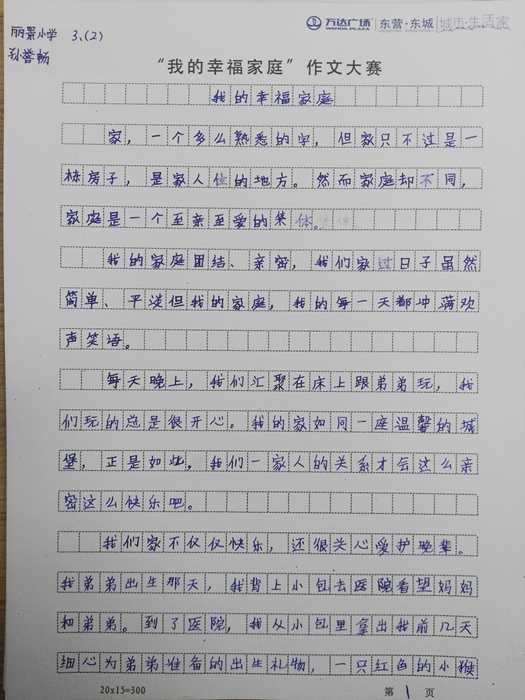 丽景小学 3、(2)
孙誉畅
万达广场 WANDA PLAZA 东营·东城 城市·生活家
“我的幸福家庭”作文大赛
我的幸福家庭
家，一个多么熟悉的字，但家只不过是一
栋房子，是家人住的地方。然而家庭却不同，
家庭是一个至亲至爱的集体。
我的家庭团结、亲密，我们家过日子虽然
简单、平淡但我的家庭，我的每一天都冲满欢
声笑语。
每天晚上，我们汇聚在床上跟弟弟玩，我
们玩的总是很开心。我的家如同一座温馨的城
堡，正是如此，我们一家人的关系才会这么亲
密这么快乐吧。
我们家不仅仅快乐，还很关心爱护晚辈。
我弟弟出生那天，我背上小包去医院看望妈妈
和弟弟。到了医院，我从小包里拿出我前几天
细心为弟弟准备的出生礼物，一只红色的小猴
20x15=300
第1页